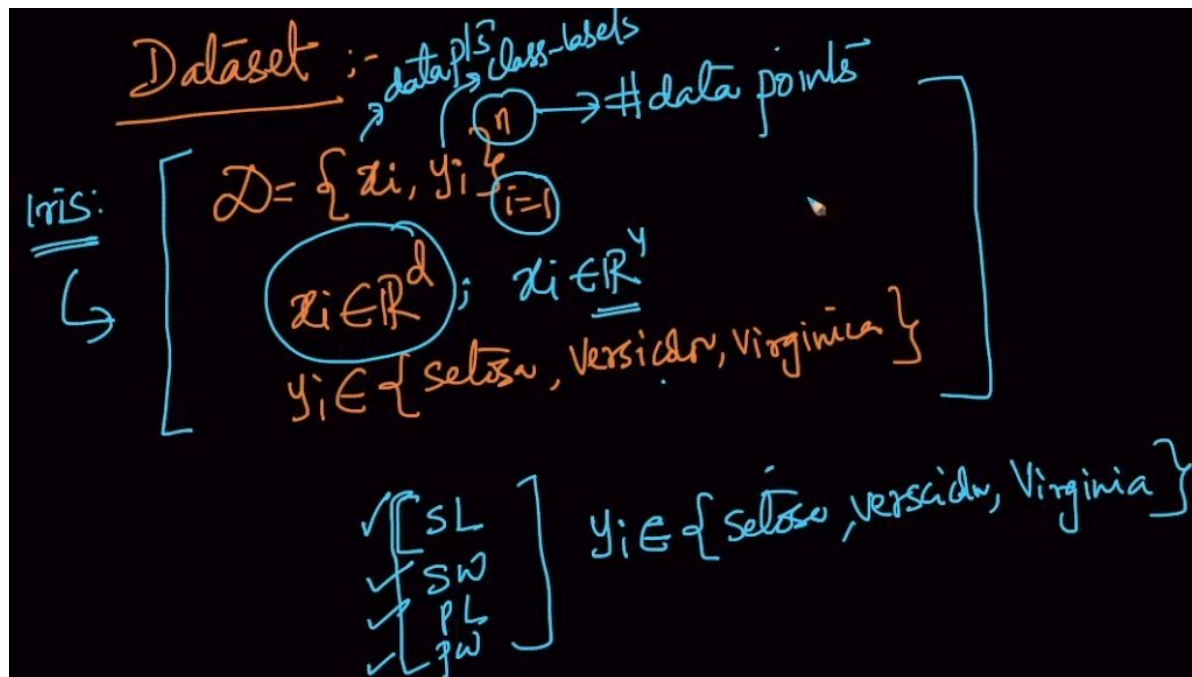 Dataset :-
data pts class-labels
n → # data points
D = { xi, yi }
i=1
Iris:
xi ∈ ℝ^d ; xi ∈ ℝ^4
yi ∈ { setosa, versicolor, virginica }
SL
SW
PL
PW
yi ∈ { setosa, versicolor, Virginia }